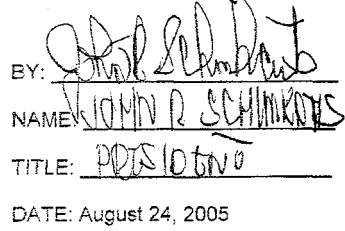 BY:
NAME: JOHN R SCHIMKAITS
TITLE: PRESIDENT
DATE: August 24, 2005